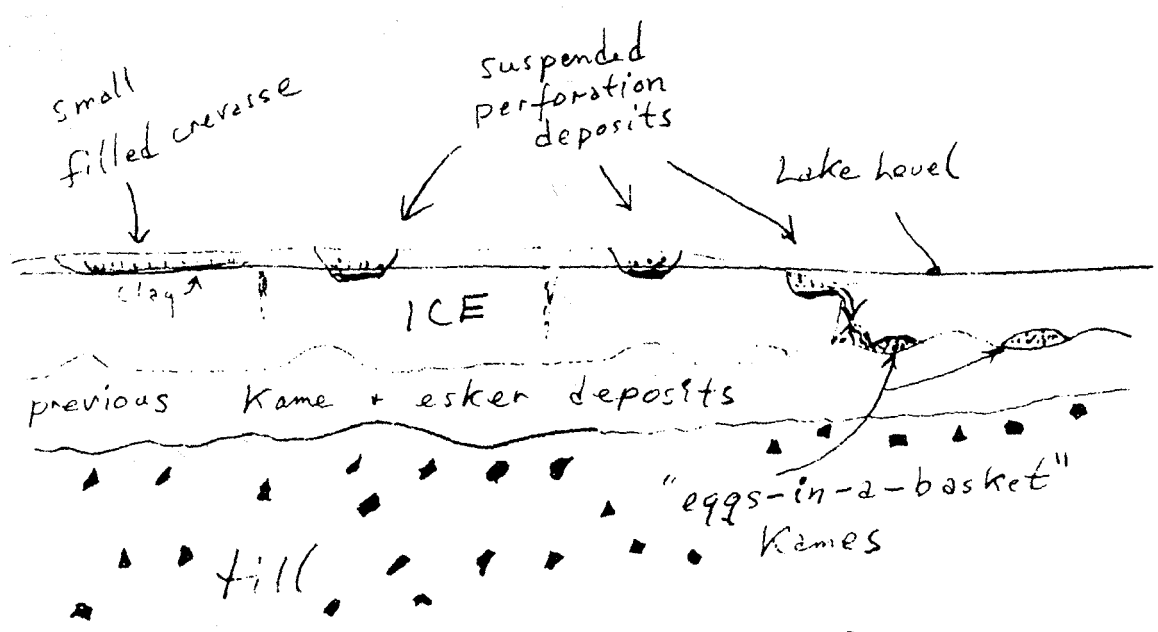 small
filled crevasse
suspended
perforation
deposits
Lake Level
clay
ICE
previous Kame + esker deposits
"eggs-in-a-basket"
Kames
till